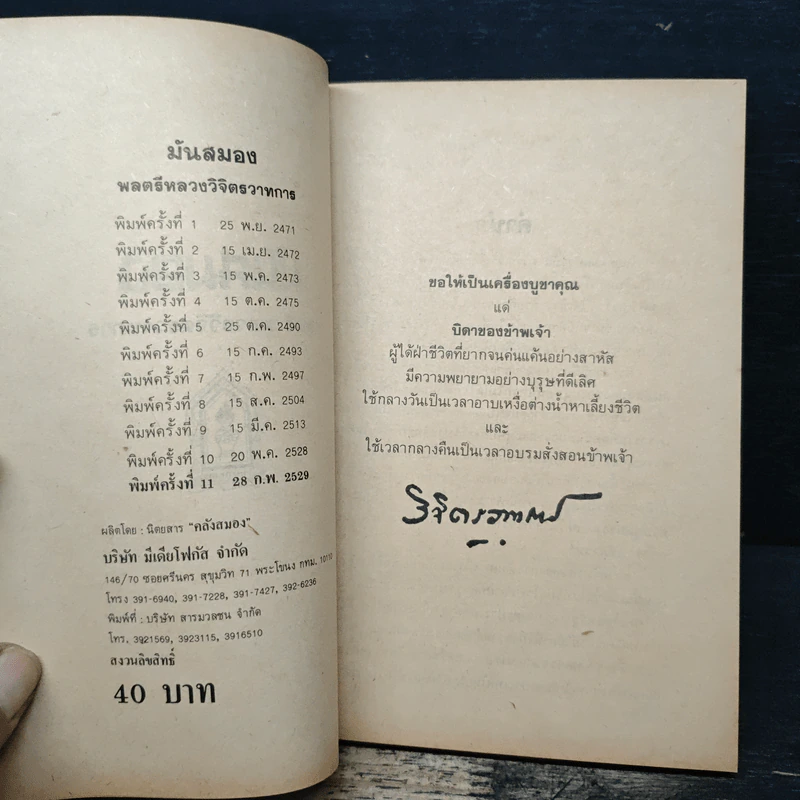 มันสมอง
พลตรีหลวงวิจิตรวาทการ
พิมพ์ครั้งที่ 1 25 พ.ย. 2471
พิมพ์ครั้งที่ 2 15 เม.ย. 2472
พิมพ์ครั้งที่ 3 15 พ.ค. 2473
พิมพ์ครั้งที่ 4 15 ต.ค. 2475
พิมพ์ครั้งที่ 5 25 ต.ค. 2490
พิมพ์ครั้งที่ 6 15 ก.ค. 2493
พิมพ์ครั้งที่ 7 15 ก.พ. 2497
พิมพ์ครั้งที่ 8 15 ส.ค. 2504
พิมพ์ครั้งที่ 9 15 มี.ค. 2513
พิมพ์ครั้งที่ 10 20 พ.ค. 2528
พิมพ์ครั้งที่ 11 28 ก.พ. 2529
ผลิตโดย : นิตยสาร "คลังสมอง"
บริษัท มีเดียโฟกัส จำกัด
146/70 ซอยศรีนคร สุขุมวิท 71 พระโขนง กทม. 10110
โทรง 391-6940, 391-7228, 391-7427, 392-6236
พิมพ์ที่ : บริษัท สารมวลชน จำกัด
โทร. 3921569, 3923115, 3916510
สงวนลิขสิทธิ์
40 บาท
ขอให้เป็นเครื่องบูชาคุณ
แด่
บิดาของข้าพเจ้า
ผู้ได้ฝ่าชีวิตที่ยากจนค่นแค้นอย่างสาหัส
มีความพยายามอย่างบุรุษที่ดีเลิศ
ใช้กลางวันเป็นเวลาอาบเหงื่อต่างน้ำหาเลี้ยงชีวิต
และ
ใช้เวลากลางคืนเป็นเวลาอบรมสั่งสอนข้าพเจ้า